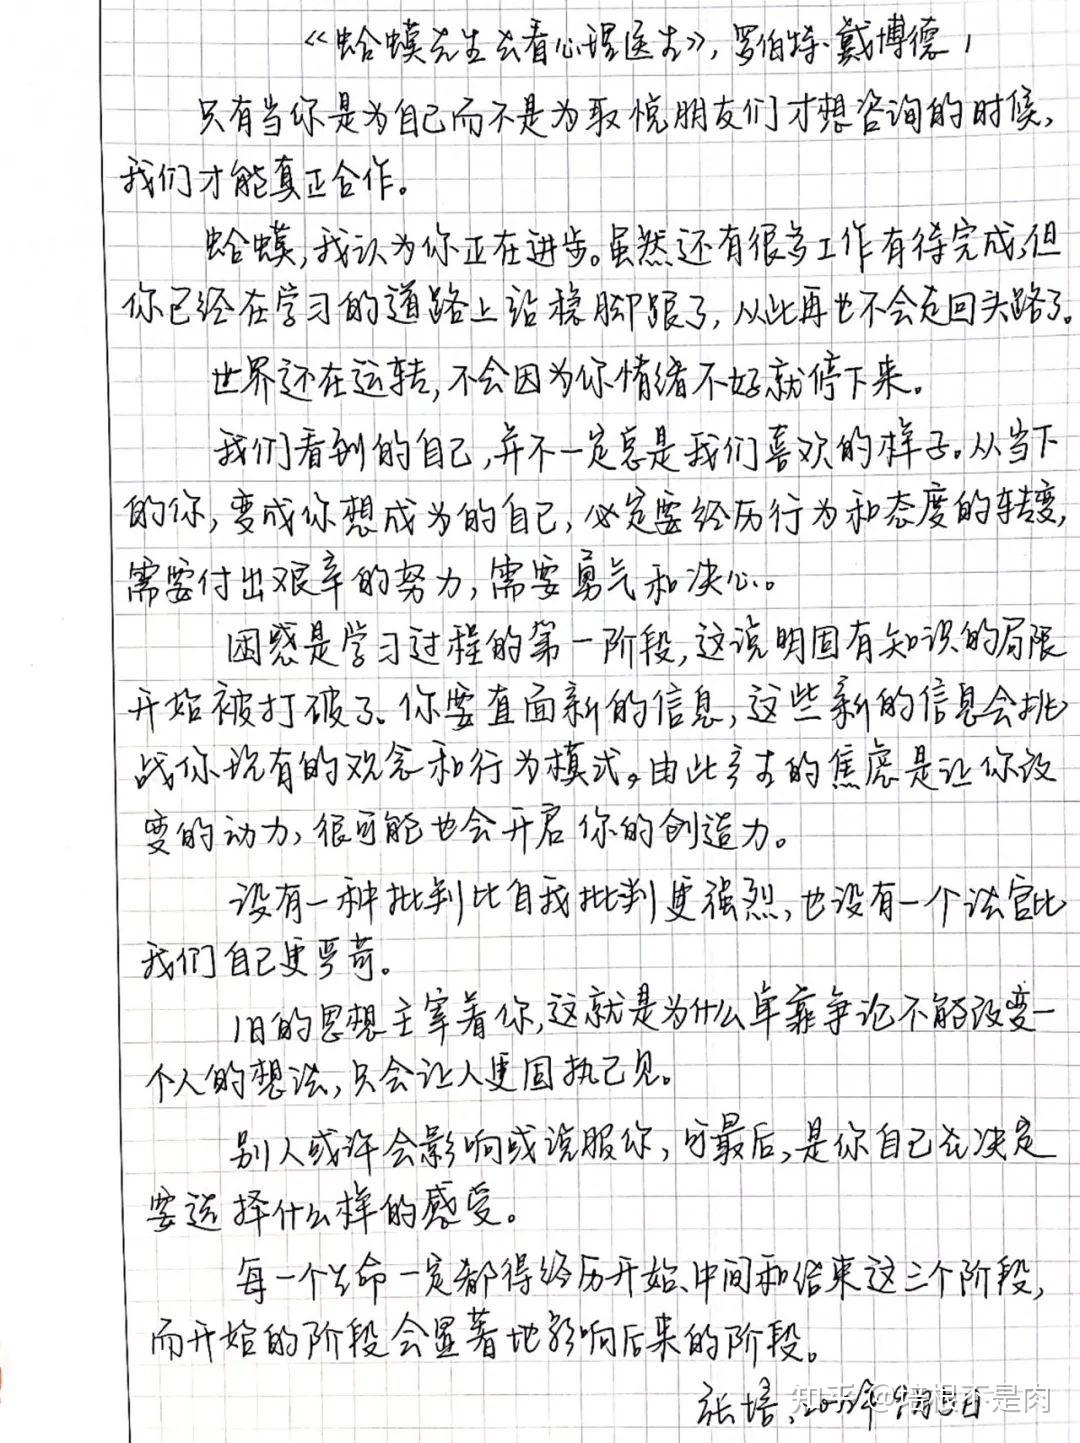 《蛤蟆先生去看心理医生》，罗伯特·戴博德，
只有当你是为自己而不是为取悦朋友们才想咨询的时候，
我们才能真正合作。
蛤蟆，我认为你正在进步。虽然还有很多工作有待完成，但
你已经在学习的道路上站稳脚跟了，从此再也不会走回头路了。
世界还在运转，不会因为你情绪不好就停下来。
我们看到的自己，并不一定总是我们喜欢的样子。从当下
的你，变成你想成为的自己，必定要经历行为和态度的转变，
需要付出艰辛的努力，需要勇气和决心。
困惑是学习过程的第一阶段，这说明固有知识的局限
开始被打破了。你要直面新的信息，这些新的信息会挑
战你现有的观念和行为模式。由此产生的焦虑是让你改
变的动力，很可能也会开启你的创造力。
没有一种批判比自我批判更强烈，也没有一个法官比
我们自己更严苛。
旧的思想主宰着你，这就是为什么单靠争论不能改变一
个人的想法，只会让人更固执己见。
别人或许会影响或说服你，可最后，是你自己在决定
要选择什么样的感受。
每一个生命一定都得经历开始、中间和结束这三个阶段，
而开始的阶段会显著地影响后来的阶段。
张培，
知乎 @培根不是肉